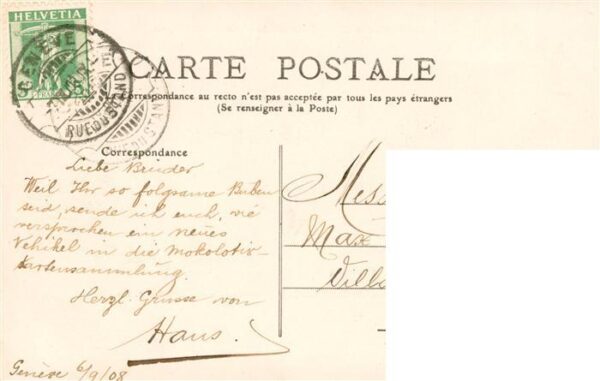 HELVETIA
GENÈVE
RUE DU STAND
CARTE POSTALE
La Correspondance au recto n'est pas acceptée par tous les pays étrangers
(Se renseigner à la Poste)
Correspondance
Liebe Brüder
Weil Ihr so folgsame Buben
seid, sende ich euch, wie
versprochen ein neues
Vehikel in die Mokolotiv-
kartensammlung.
Herzl. Grüsse von
Hans.
Genève 6/9/08
Mes
Max
Ville